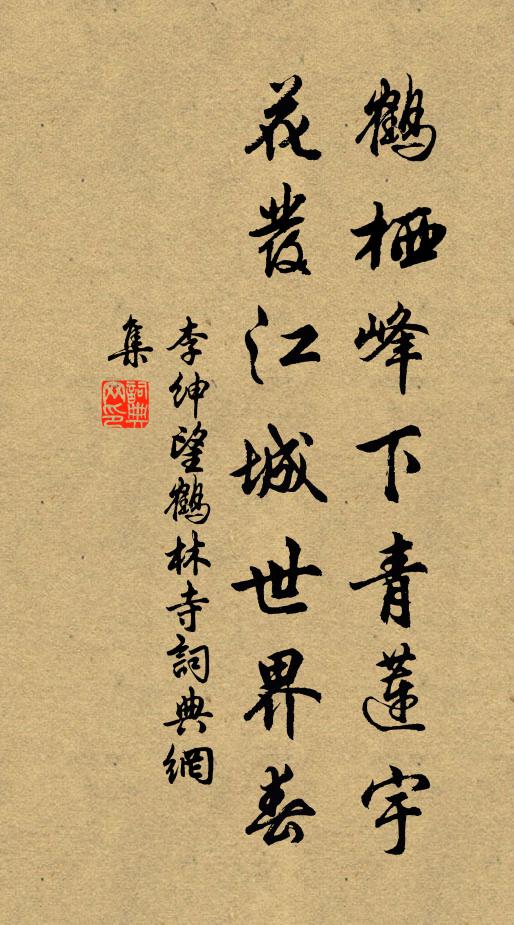 鶴栖峰下青蓮宇
花發江城世界春
李紳望鶴林寺詞典網
集
詞典
网印